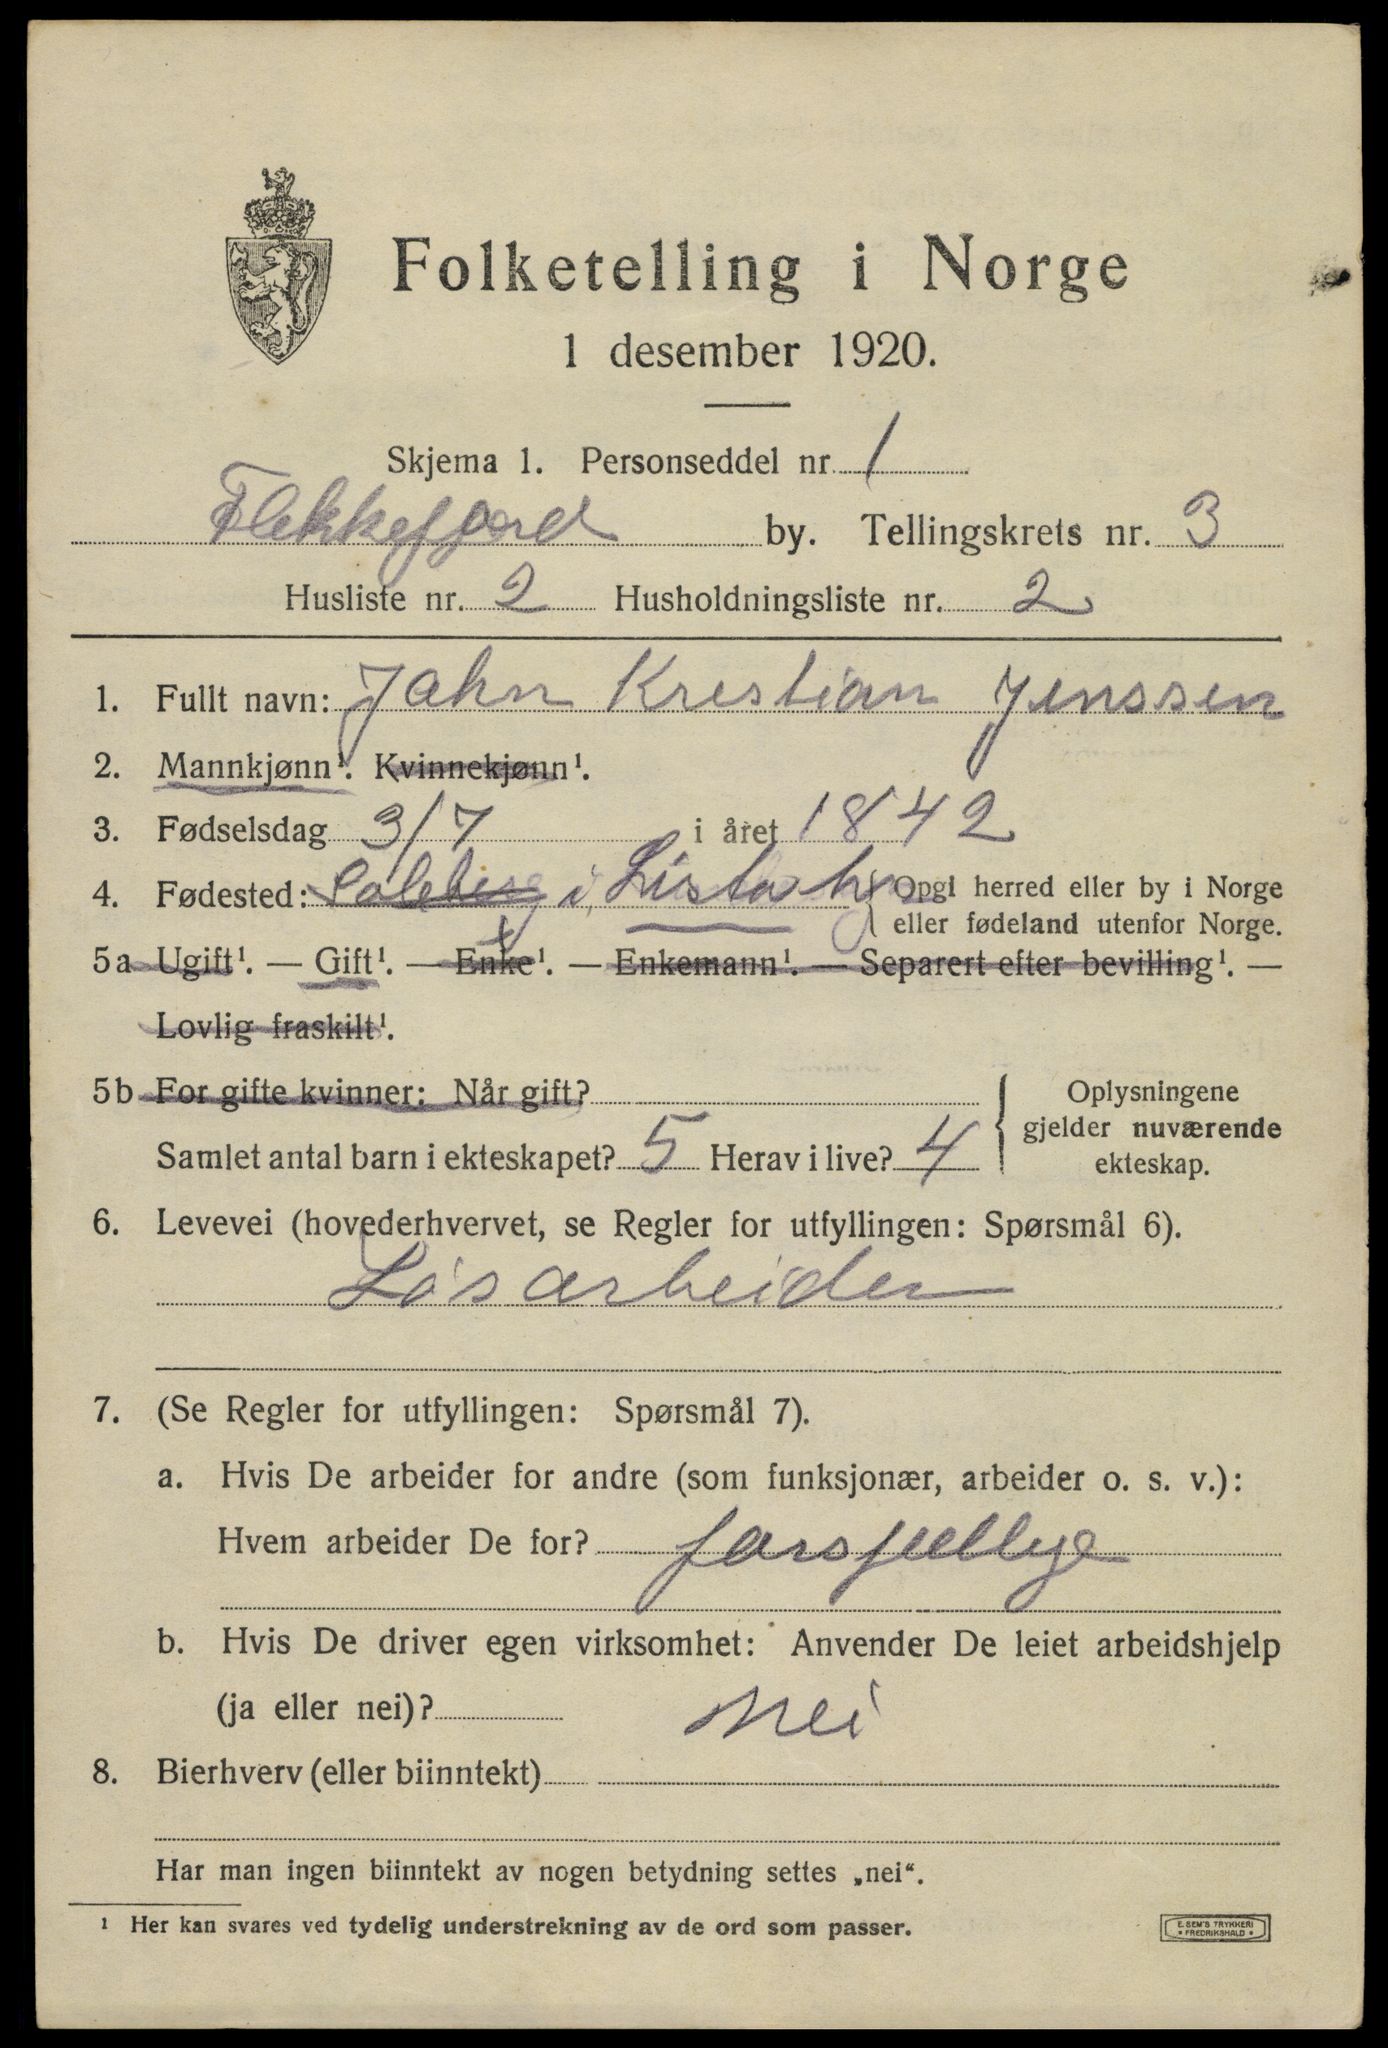 Folketelling i Norge
1 desember 1920.
Skjema 1. Personseddel nr. 1
Flekkefjord by. Tellingskrets nr. 3
Husliste nr. 2 Husholdningsliste nr. 2
1. Fullt navn: Jahn Kristian Jenssen
2. Mannkjønn¹. Kvinnekjønn¹.
3. Fødselsdag 3/7 i året 1842
4. Fødested: i Lista { Opgi herred eller by i Norge
eller fødeland utenfor Norge.
5a Ugift¹. — Gift¹. — Enke¹. — Enkemann¹. — Separert efter bevilling¹. —
Lovlig fraskilt¹.
5b For gifte kvinner: Når gift?
Samlet antal barn i ekteskapet? 5 Herav i live? 4
Oplysningene
gjelder nuværende
ekteskap.
6. Levevei (hovederhvervet, se Regler for utfyllingen: Spørsmål 6).
Løsarbeider
7. (Se Regler for utfyllingen: Spørsmål 7).
a. Hvis De arbeider for andre (som funksjonær, arbeider o. s. v.):
Hvem arbeider De for? forsjellige
b. Hvis De driver egen virksomhet: Anvender De leiet arbeidshjelp
(ja eller nei)? Nei
8. Bierhverv (eller biinntekt)
Har man ingen biinntekt av nogen betydning settes „nei“.
¹ Her kan svares ved tydelig understrekning av de ord som passer.
E. SEM'S TRYKKERI
* FREDRIKSHALD *